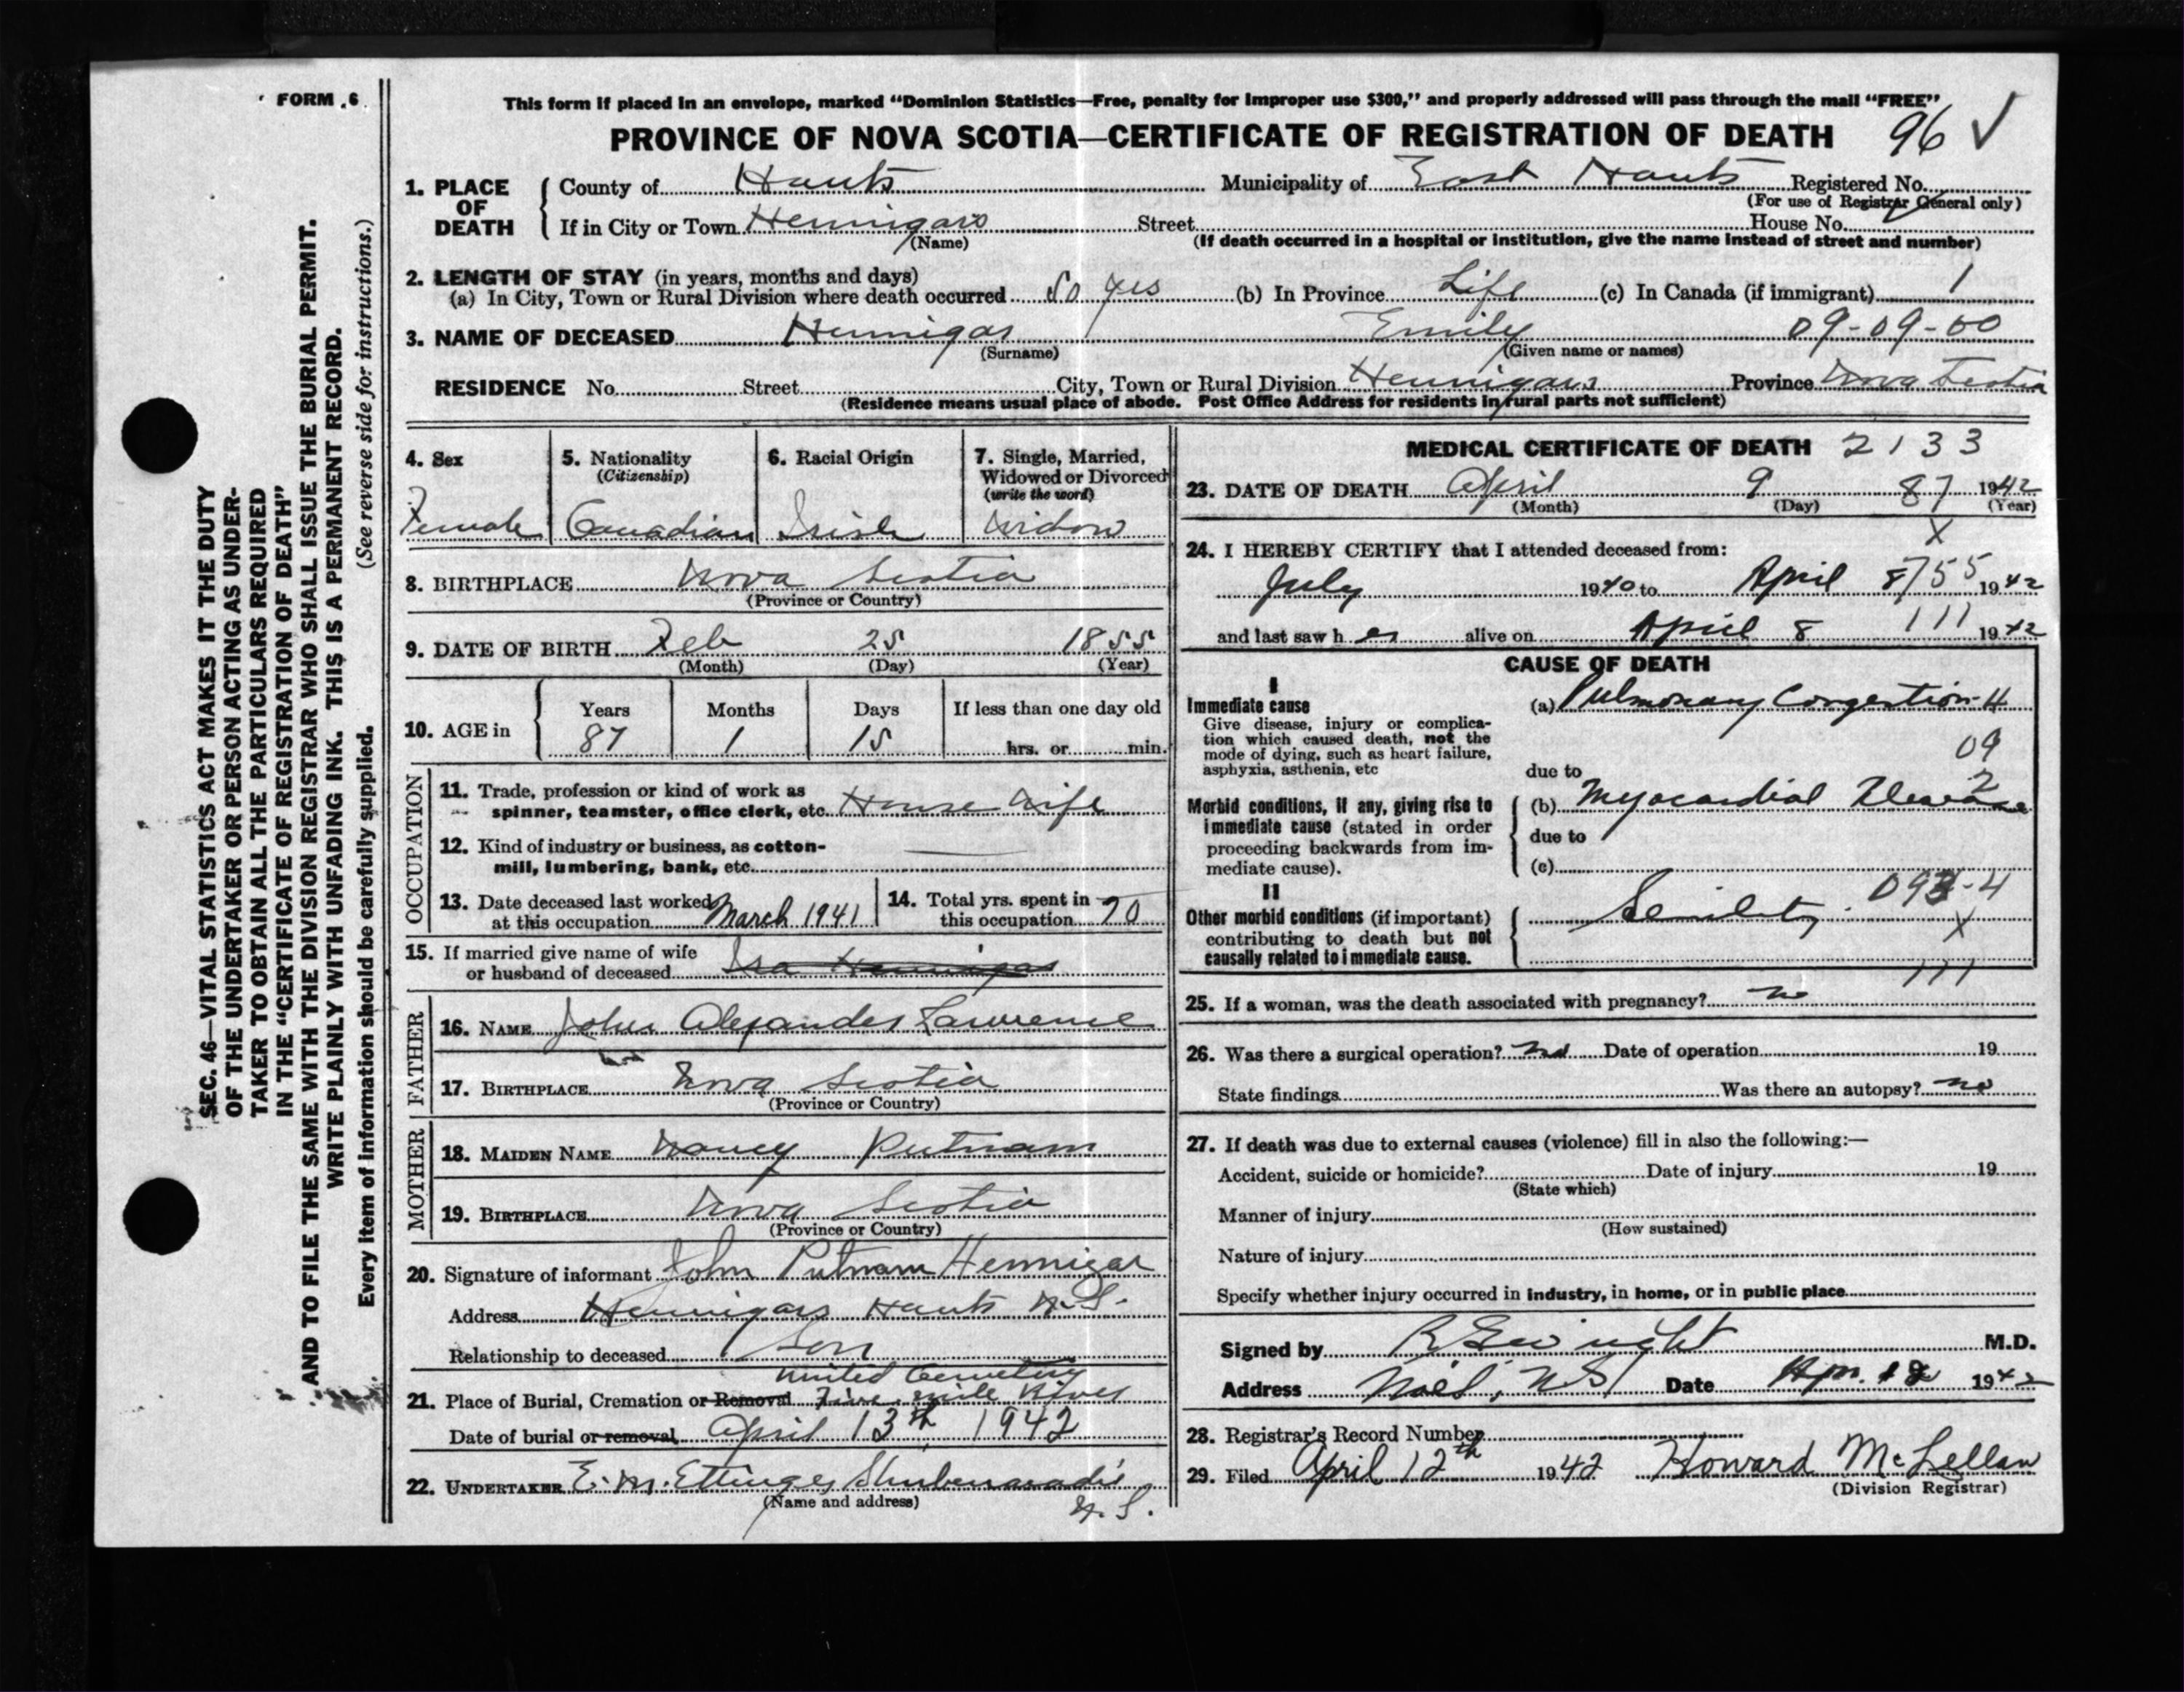 FORM 6
This form if placed in an envelope, marked "Dominion Statistics—Free, penalty for improper use $300," and properly addressed will pass through the mail "FREE"
PROVINCE OF NOVA SCOTIA—CERTIFICATE OF REGISTRATION OF DEATH 96 ✓
1. PLACE OF DEATH
County of Hants Municipality of East Hants Registered No.
(For use of Registrar General only)
If in City or Town Hennigars Street House No.
(Name) (If death occurred in a hospital or institution, give the name instead of street and number)
2. LENGTH OF STAY (in years, months and days)
(a) In City, Town or Rural Division where death occurred 80 yrs (b) In Province Life (c) In Canada (if immigrant) 1
3. NAME OF DECEASED Hennigar Emily 09-09-00
(Surname) (Given name or names)
RESIDENCE No. Street City, Town or Rural Division Hennigars Province Nova Scotia
(Residence means usual place of abode. Post Office Address for residents in rural parts not sufficient)
4. Sex
Female
5. Nationality
(Citizenship)
Canadian
6. Racial Origin
Irish
7. Single, Married,
Widowed or Divorced
(write the word)
Widow
8. BIRTHPLACE Nova Scotia
(Province or Country)
9. DATE OF BIRTH Feb 25 1855
(Month) (Day) (Year)
10. AGE in
Years Months Days If less than one day old
87 1 15 hrs. or min.
OCCUPATION
11. Trade, profession or kind of work as
spinner, teamster, office clerk, etc. House Wife
12. Kind of industry or business, as cotton-
mill, lumbering, bank, etc.
13. Date deceased last worked
at this occupation March 1941
14. Total yrs. spent in
this occupation 70
15. If married give name of wife
or husband of deceased Isa Hennigar
FATHER
16. NAME John Alexander Lawrence
17. BIRTHPLACE Nova Scotia
(Province or Country)
MOTHER
18. MAIDEN NAME Nancy Putnam
19. BIRTHPLACE Nova Scotia
(Province or Country)
20. Signature of informant John Putnam Hennigar
Address Hennigars Hants N.S.
Relationship to deceased Son
United Cemetery
21. Place of Burial, Cremation or Removal Five mile River
Date of burial or removal April 13th 1942
22. UNDERTAKER E. M. Ettinger Shubenacadie
(Name and address) N. S.
MEDICAL CERTIFICATE OF DEATH 2133
23. DATE OF DEATH April 9 87 1942
(Month) (Day) (Year)
X
24. I HEREBY CERTIFY that I attended deceased from:
July 1940 to April 8 755 1942
and last saw her alive on April 8 111 1942
CAUSE OF DEATH
I
Immediate cause
Give disease, injury or complica-
tion which caused death, not the
mode of dying, such as heart failure,
asphyxia, asthenia, etc
(a) Pulmonary Congestion 4
09
due to
2
Morbid conditions, if any, giving rise to
immediate cause (stated in order
proceeding backwards from im-
mediate cause).
(b) Myocardial
due to
(c)
II
Other morbid conditions (if important)
contributing to death but not
causally related to immediate cause.
Senility
X
111
25. If a woman, was the death associated with pregnancy? no
26. Was there a surgical operation? Date of operation 19
State findings Was there an autopsy? no
27. If death was due to external causes (violence) fill in also the following:—
Accident, suicide or homicide? Date of injury 19
(State which)
Manner of injury
(How sustained)
Nature of injury
Specify whether injury occurred in industry, in home, or in public place
Signed by M.D.
Address Noel, N.S. Date Apr. 12 1942
28. Registrar's Record Number
29. Filed April 12th 1942 Howard McLellan
(Division Registrar)
SEC. 46—VITAL STATISTICS ACT MAKES IT THE DUTY
OF THE UNDERTAKER OR PERSON ACTING AS UNDER-
TAKER TO OBTAIN ALL THE PARTICULARS REQUIRED
IN THE "CERTIFICATE OF REGISTRATION OF DEATH"
AND TO FILE THE SAME WITH THE DIVISION REGISTRAR WHO SHALL ISSUE THE BURIAL PERMIT.
WRITE PLAINLY WITH UNFADING INK. THIS IS A PERMANENT RECORD.
Every item of information should be carefully supplied. (See reverse side for instructions.)